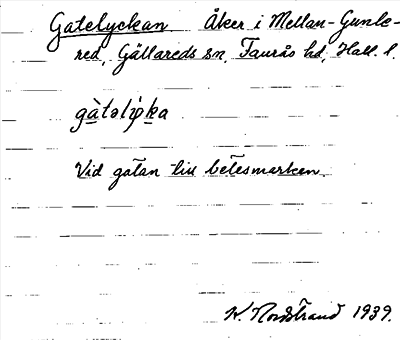 Gatelyckan Åker i Mellan-Gunle-
red, Gällareds sn, Faurås hd, Hall. l.
gàtəlỳka
Vid gatan till betesmarken.
K. Nordstrand 1939.